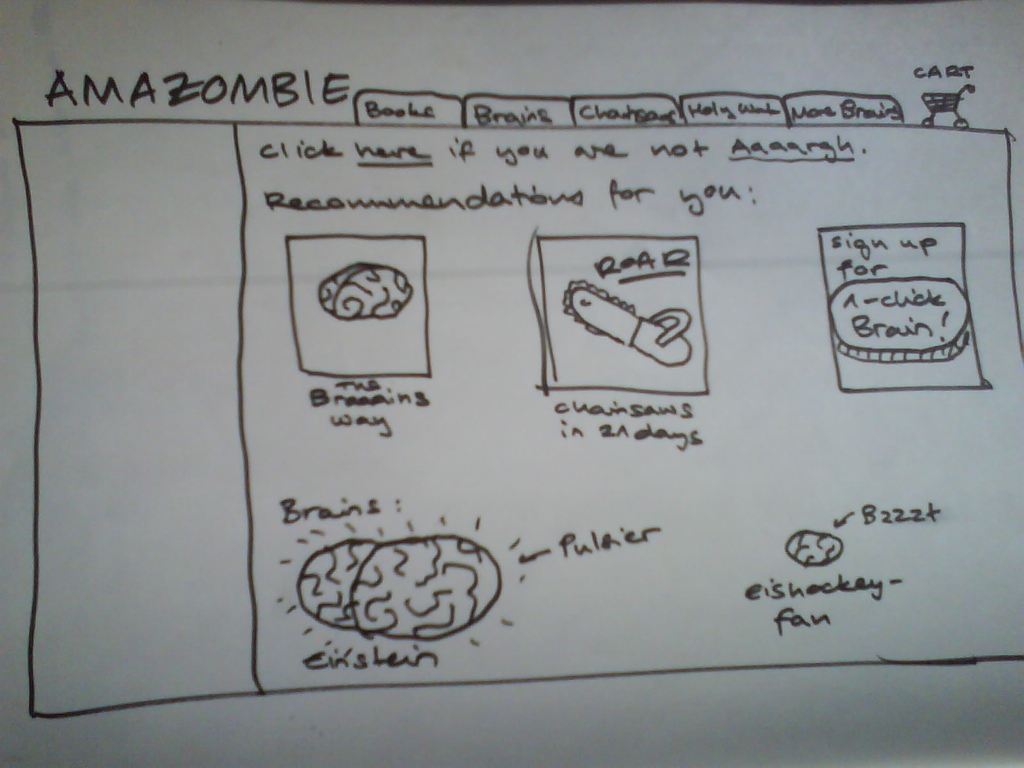 AMAZOMBIE
CART
Books
Brains
Chainsaws
Holy
More Brains
Click here if you are not Aaaargh.
Recommendations for you:
The
Braaains
way
ROAR
Chainsaws
in 21 days
sign up
for
1-click
Brain!
Brains:
Pulsier
Einstein
Bzzzt
eishockey-
fan